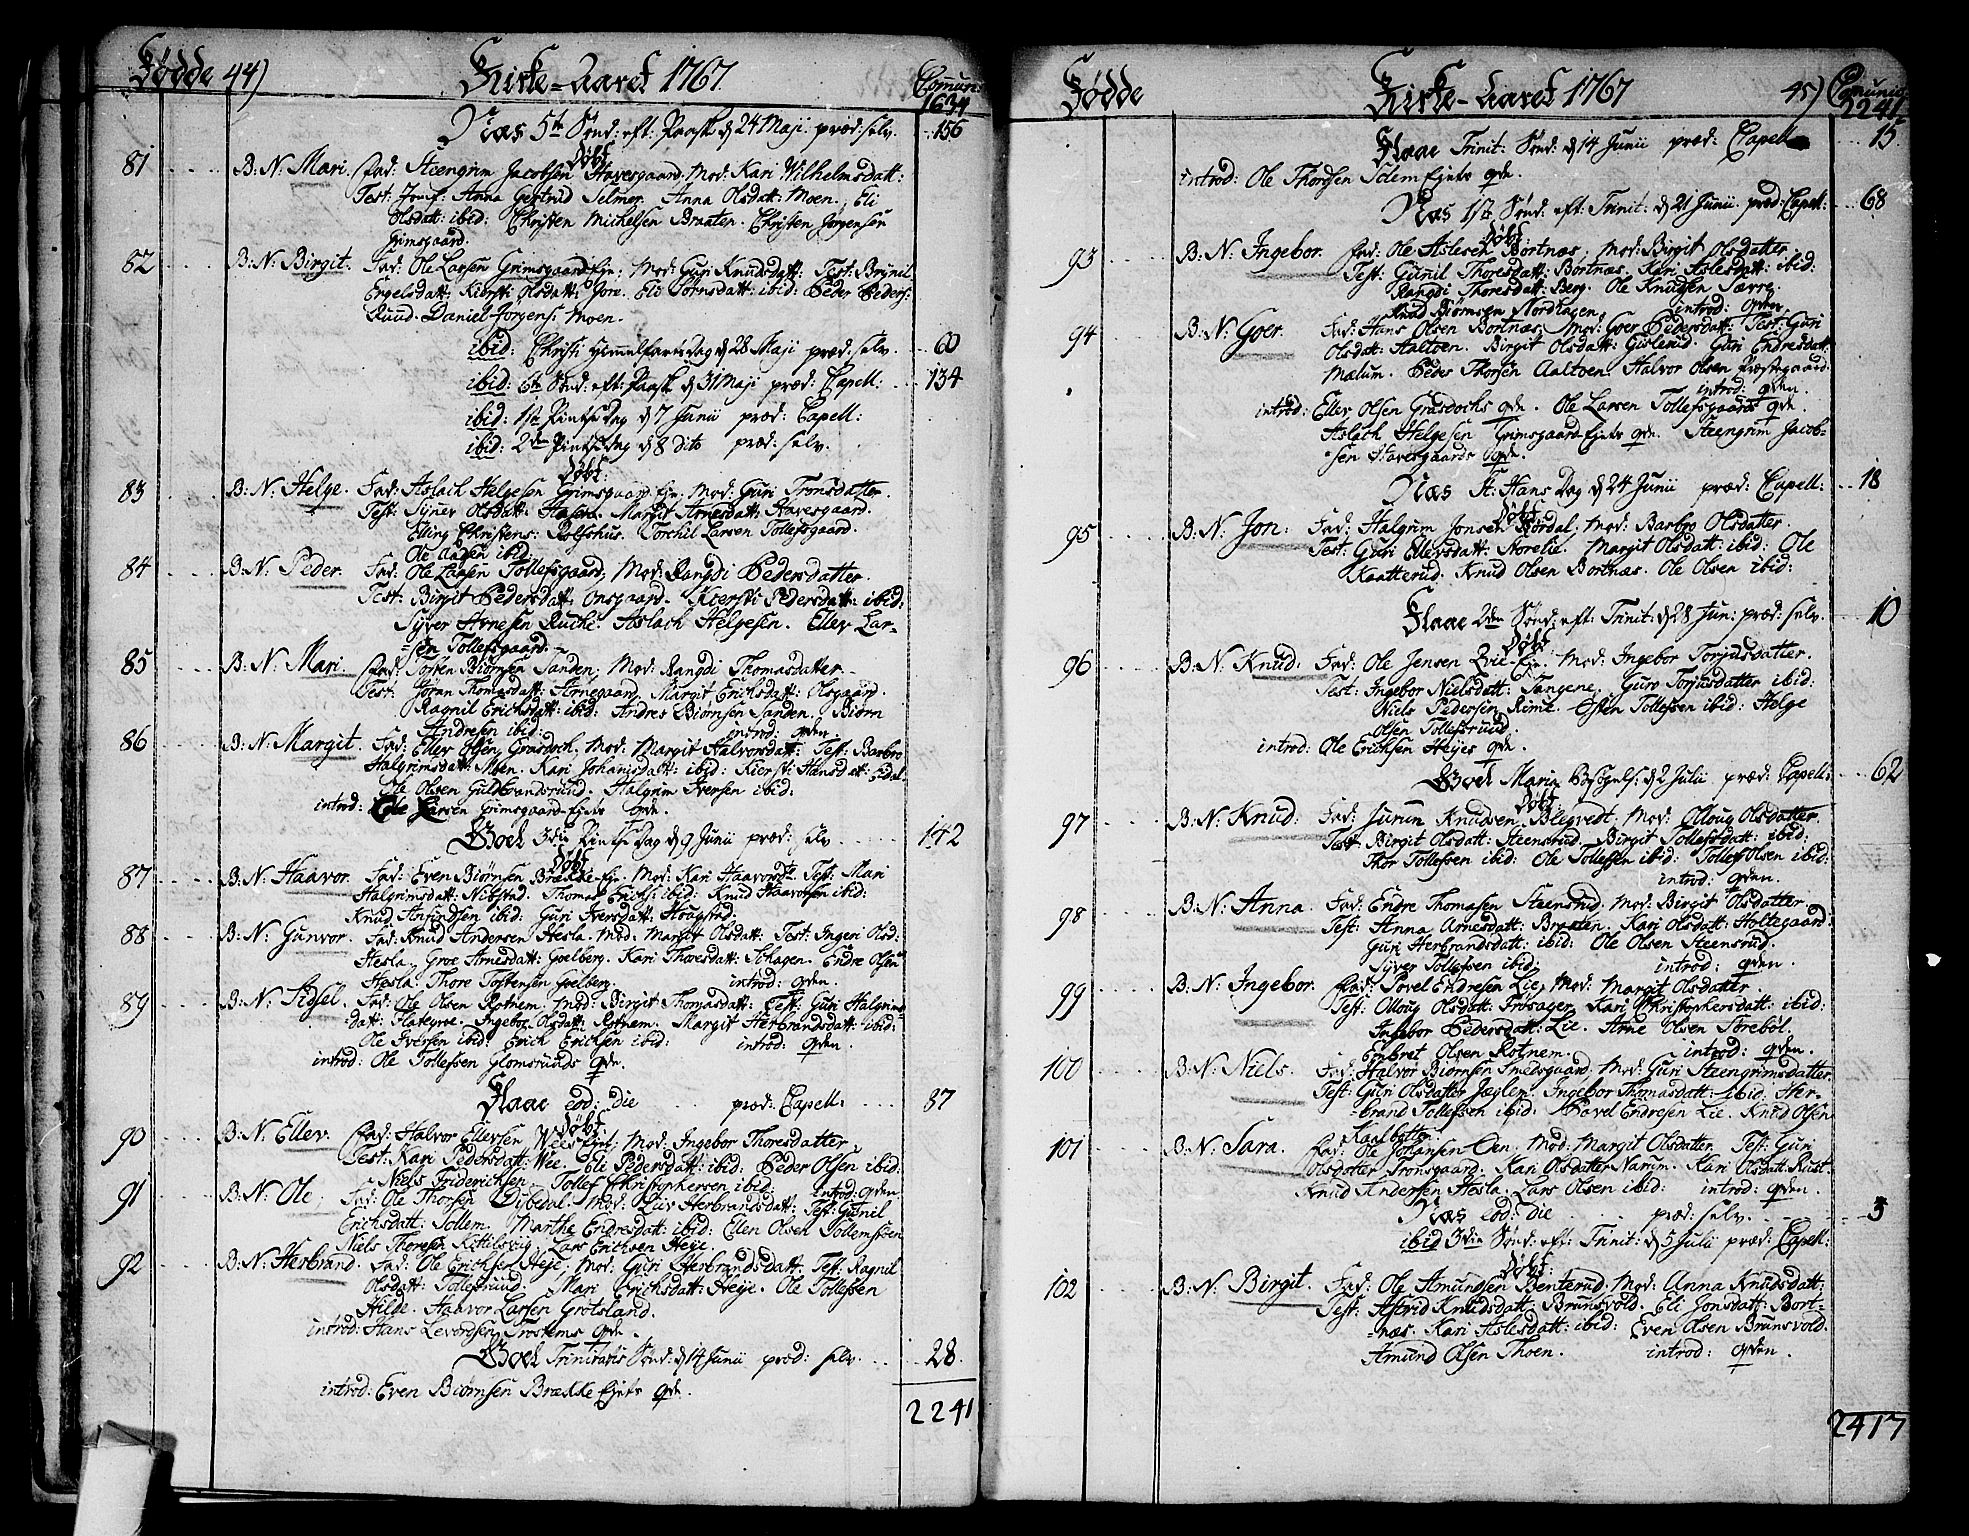 Fødde 44) Kirke-Aaret 1767. Comun:
1634
Næs 5te Sønd: eft: Paask d 24 Maji præd: selv. 156
Døbt
81 B: N: Mari. Fad: Steengrim Jacobsen Havesgaard. Mod: Kari Wilhelmsdatt:
Test: Jomf: Anna Gertrud Selmer. Anna Olsdatt: Moen. Eli
Olsdatt: ibid: Christen Michelsen Braaten. Christen Jørgensen
Grimsgaard.
82 B: N: Birgit. Fad: Ole Larsen Grimsgaard Eje: Mod: Guri Knudsdatt: Test: Brynil
Engelsdatt: Kiersti Olsdatt: Jore. Eli Børnsdatt: ibid: Peder Peders:
Ruud. Daniel Jørgens: Moen.
ibid: Christi Himmelfarts Dag d 28 Maji præd: selv. 60
ibid: 6te Sønd: eft: Paask d 31 Maji præd: Capell: 134
ibid: 1ste Pintse Dag d 7 Junii præd: Capell:
ibid: 2den Pintse Dag d 8 dito præd: selv.
Døbt:
83 B: N: Helge. Fad: Aslach Helgesen Grimsgaard Eje: Mod: Guri Tronsdatter.
Test: Syner Olsdatt: Hasen. Margit Arnesdatt: Havesgaard.
Elling Christens: Rolfshus. Torchil Larsen Tollefsgaard.
Ole Aasen ibid:
84 B: N: Peder. Fad: Ole Larsen Tollefsgaard, Mod: Rangdi Pedersdatter.
Test: Birgit Pedersdatt: Onsgaard. Kiersti Pedersdatt: ibid:
Syver Arnesen Ruche. Aslach Helgesen. Ellev Lar-
sen Tollefsgaard.
85 B: N: Mari. Fad: Tosten Biørnsen Sanden, Mod: Rangdi Thomasdatter
Test: Jøran Thomasdatt: Arnegaard, Margit Erichsdatt: Olsgaard.
Ragnil Erichsdatt: ibid: Andres Biørnsen Sanden. Biørn
Andresen ibid: introd: qven.
86 B: N: Margit. Fad: Ellev Olsen Grasdoch. Mod: Margit Halvorsdatt: Test: Barbro
Halgrimsdatt: Moen. Kari Johansdatt: ibid: Kiersti Hansdatt: Eidal.
Ole Olsen Guldbrandsruud. Halgrim Iversen ibid:
introd: Ole Larsen Grimsgaard Ejets qvn.
Goel 3die Pintse Dag d 9 Junii præd: selv 142
Døbt
87 B: N: Haavor. Fad: Even Biørnsen Brække Eje. Mod: Kari Haavorsdt. Test: Mari
Halgrimsdatt: Nibstad. Thomas Erichs: ibid: Knud Haavorsen ibid:
Knud Anfindsen ibid: Guri Iversdatt: Hougstad.
88 B: N: Gunvor. Fad: Knud Andersen Hesla. Mod: Margit Olsdatt: Test: Ingeri Olsd:
Hesla. Groe Arnesdatt: Goelberg. Kari Thoresdatt: Tohagen. Endre Olsen
Hesla. Thore Tostensen Goelberg. introd: qvden.
89 B: N: Sidsel. Fad: Ole Olsen Rotnem. Mod: Birgit Thomasdatt: Test: Guri Halgrims
datt: Flategroe. Ingebor Olsdatt: Rotnem. Margit Herbrandsdatt: ibid:
Ole Iversen ibid: Erich Erichsen ibid: introd: qvden.
introd: Ole Tollefsen Glomsrunds qvn.
Flaae eod: die præd: Capell: 87
Døbt
90 B: N: Ellev. Fad: Halvor Ellevsen Wees Ejet, Mod: Ingebor Thoresdatter
Test: Kari Pedersdatt: Wee. Eli Pedersdatt: ibid: Peder Olsen ibid.
Niels Friderichsen. Tollef Christophersen ibid: introd: qvden.
91 B: N: Ole. Fad: Ole Thorsen Dybedal. Mod: Liv Herbrandsdatt: Test: Gunil
Erichsdatt: Tollem. Marthe Endresdatt: ibid: Ellen Olsen Tollemstoen
Niels Thoresen Kittilsviig Lars Erichsen Heje.
92 B: N: Herbrand. Fad: Ole Erichsen Heje, Mod: Guri Herbrandsdatt: Test: Ragnil
Olsdatt: Tollefsruud. Mari Erichsdatt: Heje. Ole Tollefsen
Hilde. Haavor Larsen Grøtsland.
introd: Hans Levordsen Trostems qvn.
Goel Trinitatis Sønd: d 14 Junii præd: selv. 28
introd: Even Biørnsen Brække Ejets qvn.
2241
Fødde Kirke-Aaret 1767 45) Comunic:
2241
Flaae Trinit: Sønd: d 14 Junii præd: Capell 15
introd: Ole Thordsen Solem Ejets qvn.
Næs 1ste Sønd: eft: Trinit: d 21 Junii præd: Capell: 68
Døbt
93 B: N: Ingebor. Fad: Ole Aslesen Bortnæs, Mod: Birgit Olsdatter.
Test: Gunil Thoresdatt: Bortnæs. Kari Aslesdatt: ibid.
Rangdi Thoresdatt: Berg. Ole Knudsen Sævre.
Knud Biørnsen Nordhagen. introd: qvden.
94 B: N: Goer. Fad: Hans Olsen Bortnæs, Mod: Goer Pedersdatt: Test: Guri
Olsdatt: Aaltoen. Birgit Olsdatt: Gislerud. Guri Endresdatt:
Mælum. Peder Thorsen Aaltoen. Halvor Olsen Præstegaard.
introd: qvden.
introd: Ellev Olsen Grasdochs qvn. Ole Larsen Tollefsgaards qvn.
Aslach Helgesen Grimsgaard Ejets qvn. Steengrim Jacob-
sen Havesgaards qvn.
Næs St: Hans Dag d 24 Junii præd: Capell: 18
Døbt
95 B: N: Jon: Fad: Halgrim Jonsen Bordal. Mod: Barbro Olsdatter.
Test: Guri Ellevsdatt: Horelie. Margit Olsdatt: ibid: Ole
Kaatterud. Knud Olsen Bortnæs. Ole Olsen ibid:
Flaae 2den Sønd: eft: Trinit: d 28 Jun: præd: selv. 10
Døbt
96 B: N: Knud. Fad: Ole Jensen Qvie Eje. Mod: Ingebor Torjusdatter.
Test: Ingebor Nielsdatt: Tangene. Guro Torjusdatter ibid:
Niels Pedersen Rime. Esten Tollefsen ibid: Helge
Olsen Tollefsruud.
introd: Ole Erichsen Hejes qvn.
Goel Mariæ Besøgels: d 2 Julii præd: Capell: 62
Døbt:
97 B: N: Knud. Fad: Jurun Knudsen Blegvest. Mod: Olloug Olsdatter.
Test: Birgit Olsdatt: Steensrud. Birgit Tollefsdatt: ibid:
Thor Tollefsen ibid: Ole Tollefsen ibid: Tollef Olsen ibid:
introd: qvden.
98 B: N: Anna. Fad: Endre Thomasen Steensrud. Mod: Birgit Olsdatter
Test: Anna Arnesdatt: Braaten. Kari Olsdatt: Holtegaard:
Guri Herbrandsdatt: ibid: Ole Olsen Steensrud.
Syver Tollefsen ibid: introd: qvden.
99 B: N: Ingebor. Fad: Povel Endresen Lie, Mod: Margit Olsdatter.
Test: Olloug Olsdatt: Frøsager. Kari Christophersdatt: ibid:
Ingebor Pedersdatt: Lie. Arne Olsen Storebøl.
Enbret Olsen Rotnem. introd: qvden.
100 B: N: Niels. Fad: Halvor Biørnsen Smedsgaard, Mod: Guri Steengrimsdatter.
Test: Guri Olsdatter Jaglem. Ingebor Thomasdatt: ibid. Her-
brand Tollefsen ibid: Povel Endresen Lie. Knud Olsen
Kaalbotten.
101 B: N: Sara. Fad: Ole Johansen Øen. Mod: Margit Olsdatter. Test: Guri
Olsdatter Tronsgaard. Kari Olsdatter Narum. Kari Olsdatt: Rust.
Knud Andersen Hesla. Lars Olsen ibid: introd: qvden.
Næs eod: die præd: selv. 3
ibid 3die Sønd: eft: Trinit: d 5 Julii præd: Capell:
Døbt:
102 B: N: Birgit. Fad: Ole Amundsen Benterud, Mod: Anna Knudsdatt:
Test: Astrid Knudsdatt: Brunsvold. Eli Jonsdatt: Bort-
næs. Kari Aslesdatt: ibid: Even Olsen Brunsvold.
Amund Olsen Thoen. introd: qvden.
2417